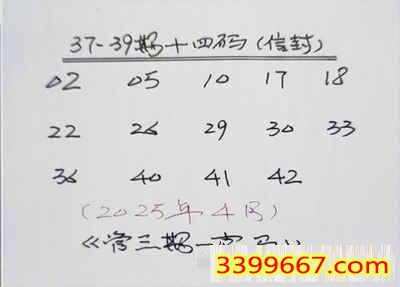 37-39期十四码(信封)
02 05 10 17 18
22 26 29 30 33
36 40 41 42
(2025年4月)
《管三期一
3399667.com